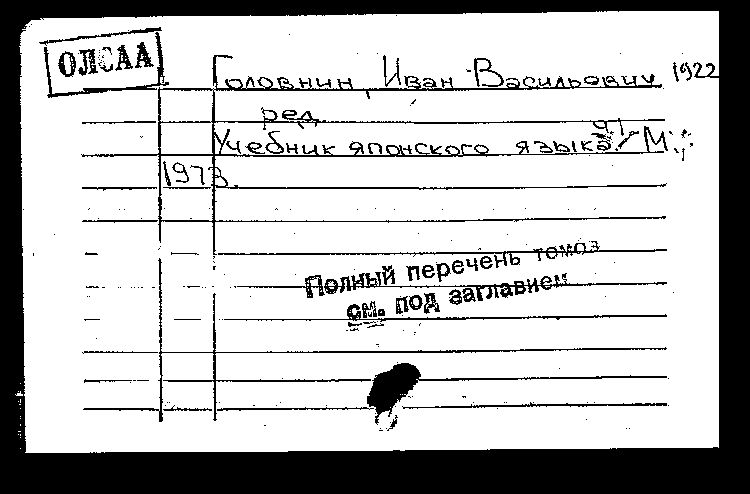 ОЛСАА
Головнин, Иван Васильевич, 1922
ред.
Учебник японского языка. М.:
1973.
Полный перечень томов
см. под заглавием